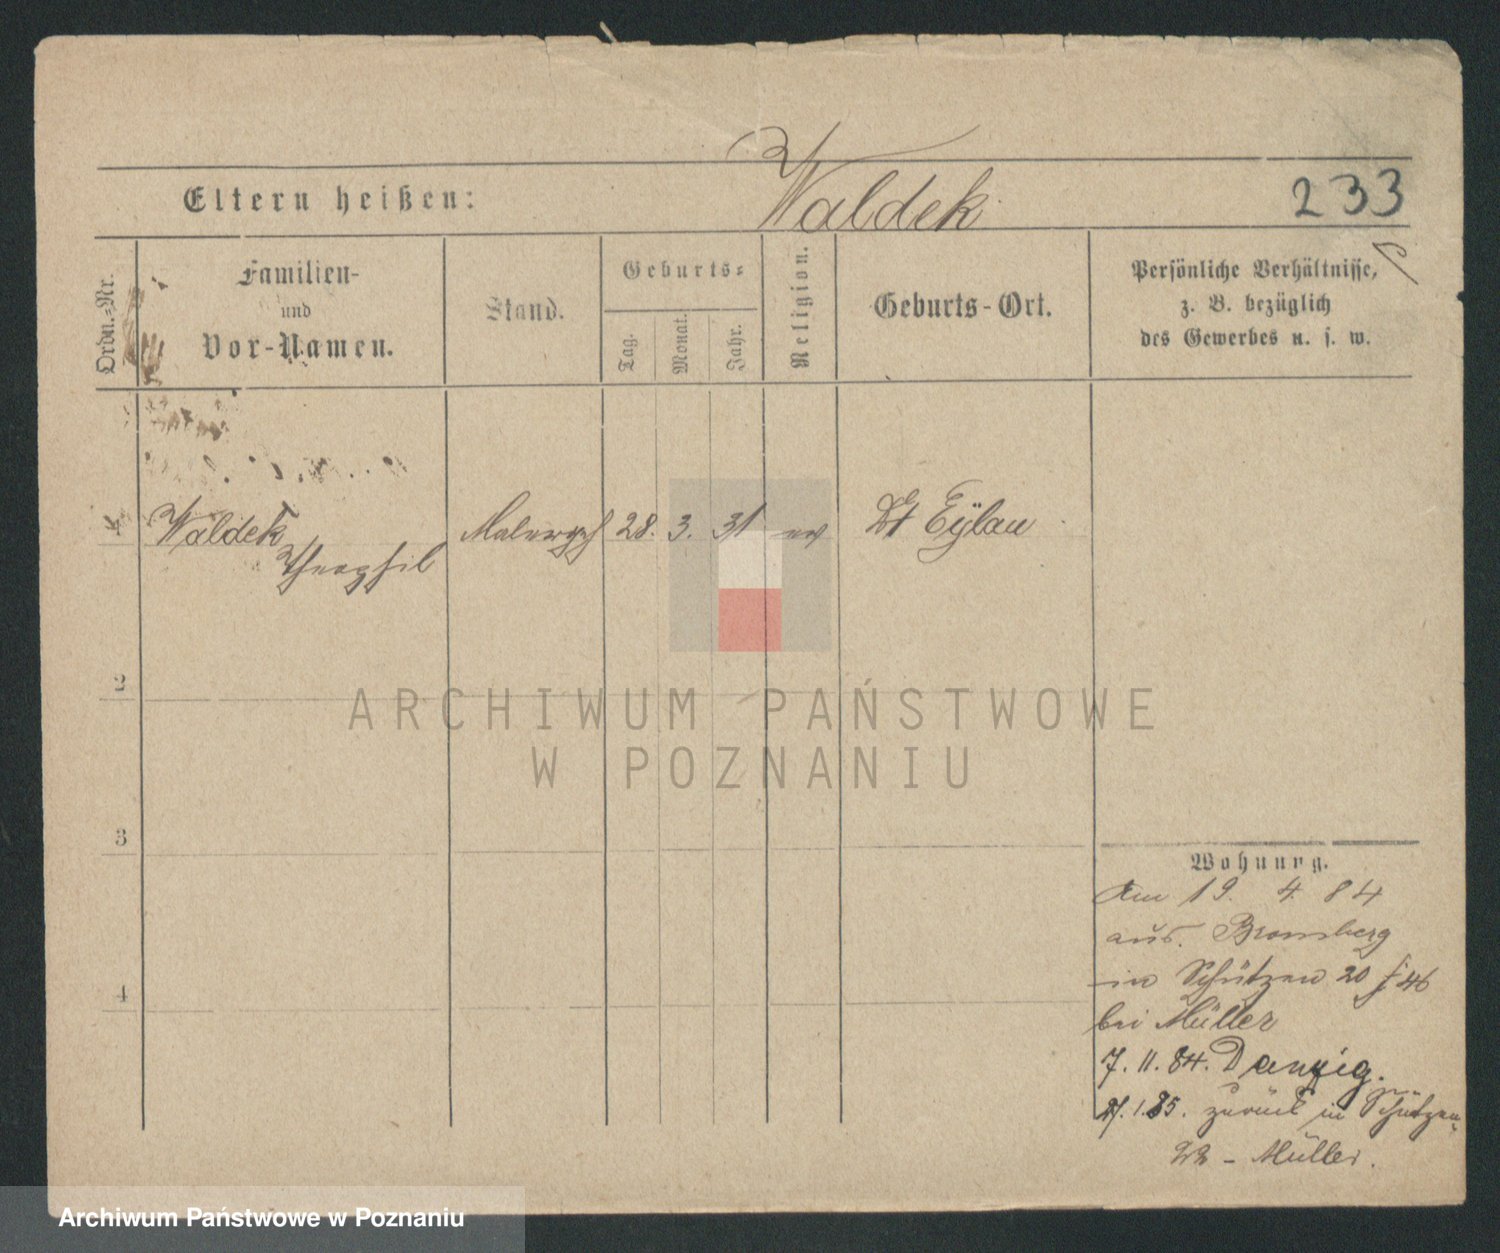 Waldek
Eltern heißen:
233
Ordn.-Nr.
Familien-
und
Vor-Namen.
Stand.
Geburts-
Tag.
Monat.
Jahr.
Religion.
Geburts-Ort.
Persönliche Verhältnisse,
z. B. bezüglich
des Gewerbes u. s. w.
1
Waldek
Theophil
Malergeh
28.
3.
31
ev
Dt Eylau
2
ARCHIWUM PAŃSTWOWE
W POZNANIU
3
Wohnung.
Am 19. 4. 84
aus. Bromberg
in Schützen 20 f 46
bei Müller
7. 11. 84. Danzig.
1. 85. zurück in Schützen
22 - Müller.
4
Archiwum Państwowe w Poznaniu